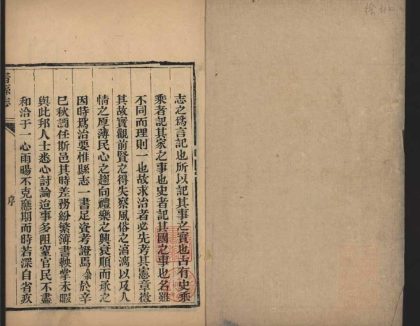 志之爲言記也所以記其事之實也古有史乘
乘者記其家之事也史者記其國之事也名雖
不同而理則一也故求治者必先考其憲章徵
其故實觀前賢之得失察風俗之淳漓以及人
情之厚薄民心之趨向禮樂之興衰順而承之
因時爲治要惟縣志一書足資考證焉余於辛
巳秋調任斯邑其時差務紛繁簿書鞅掌未暇
與此邦人士悉心討論造事多阻窒官民不盡
和洽于一心雨暘不克應期而時若深自省歉
縣志
序